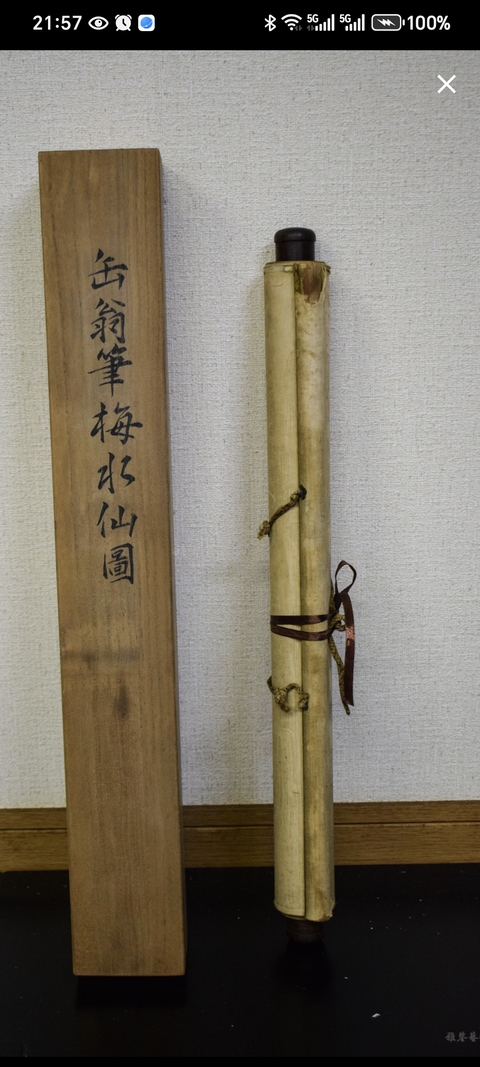 21:57
5G
5G
100%
缶翁筆梅水仙圖